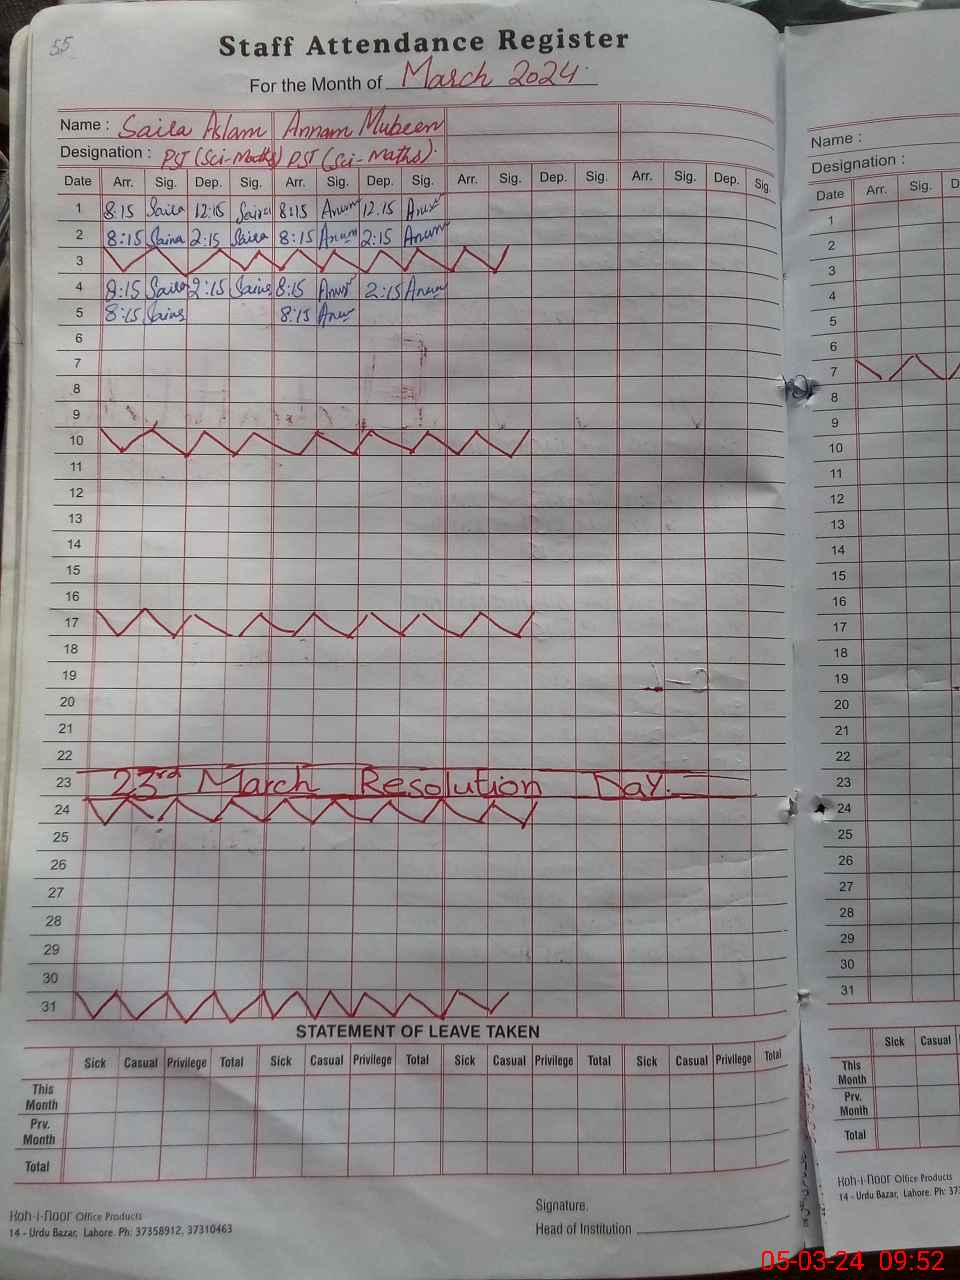 55
Staff Attendance Register
For the Month of March 2024.
Name : Saira Aslam Annam Mubeen
Designation : PST (Sci-Maths) PST (Sci-Maths).
Date Arr. Sig. Dep. Sig. Arr. Sig. Dep. Sig. Arr. Sig. Dep. Sig. Arr. Sig. Dep. Sig.
1 8:15 Saira 12:15 Saira 8:15 Anum 12:15 Anum
2 8:15 Saira 2:15 Saira 8:15 Anum 2:15 Anum
3
4 8:15 Saira 2:15 Saira 8:15 Anum 2:15 Anum
5 8:15 Saira 8:15 Anum
6
7
8
9
10
11
12
13
14
15
16
17
18
19
20
21
22
23 23rd March Resolution Day.
24
25
26
27
28
29
30
31
STATEMENT OF LEAVE TAKEN
Sick Casual Privilege Total Sick Casual Privilege Total Sick Casual Privilege Total Sick Casual Privilege Total
This Month
Prv. Month
Total
Signature.
Head of Institution
Koh-i-noor Office Products
14 - Urdu Bazar, Lahore. Ph: 37358912, 37310463
Name :
Designation :
Date Arr. Sig.
1
2
3
4
5
6
7
8
9
10
11
12
13
14
15
16
17
18
19
20
21
22
23
24
25
26
27
28
29
30
31
Sick Casual
This Month
Prv. Month
Total
Koh-i-noor Office Products
14 - Urdu Bazar, Lahore. Ph:
05-03-24 09:52